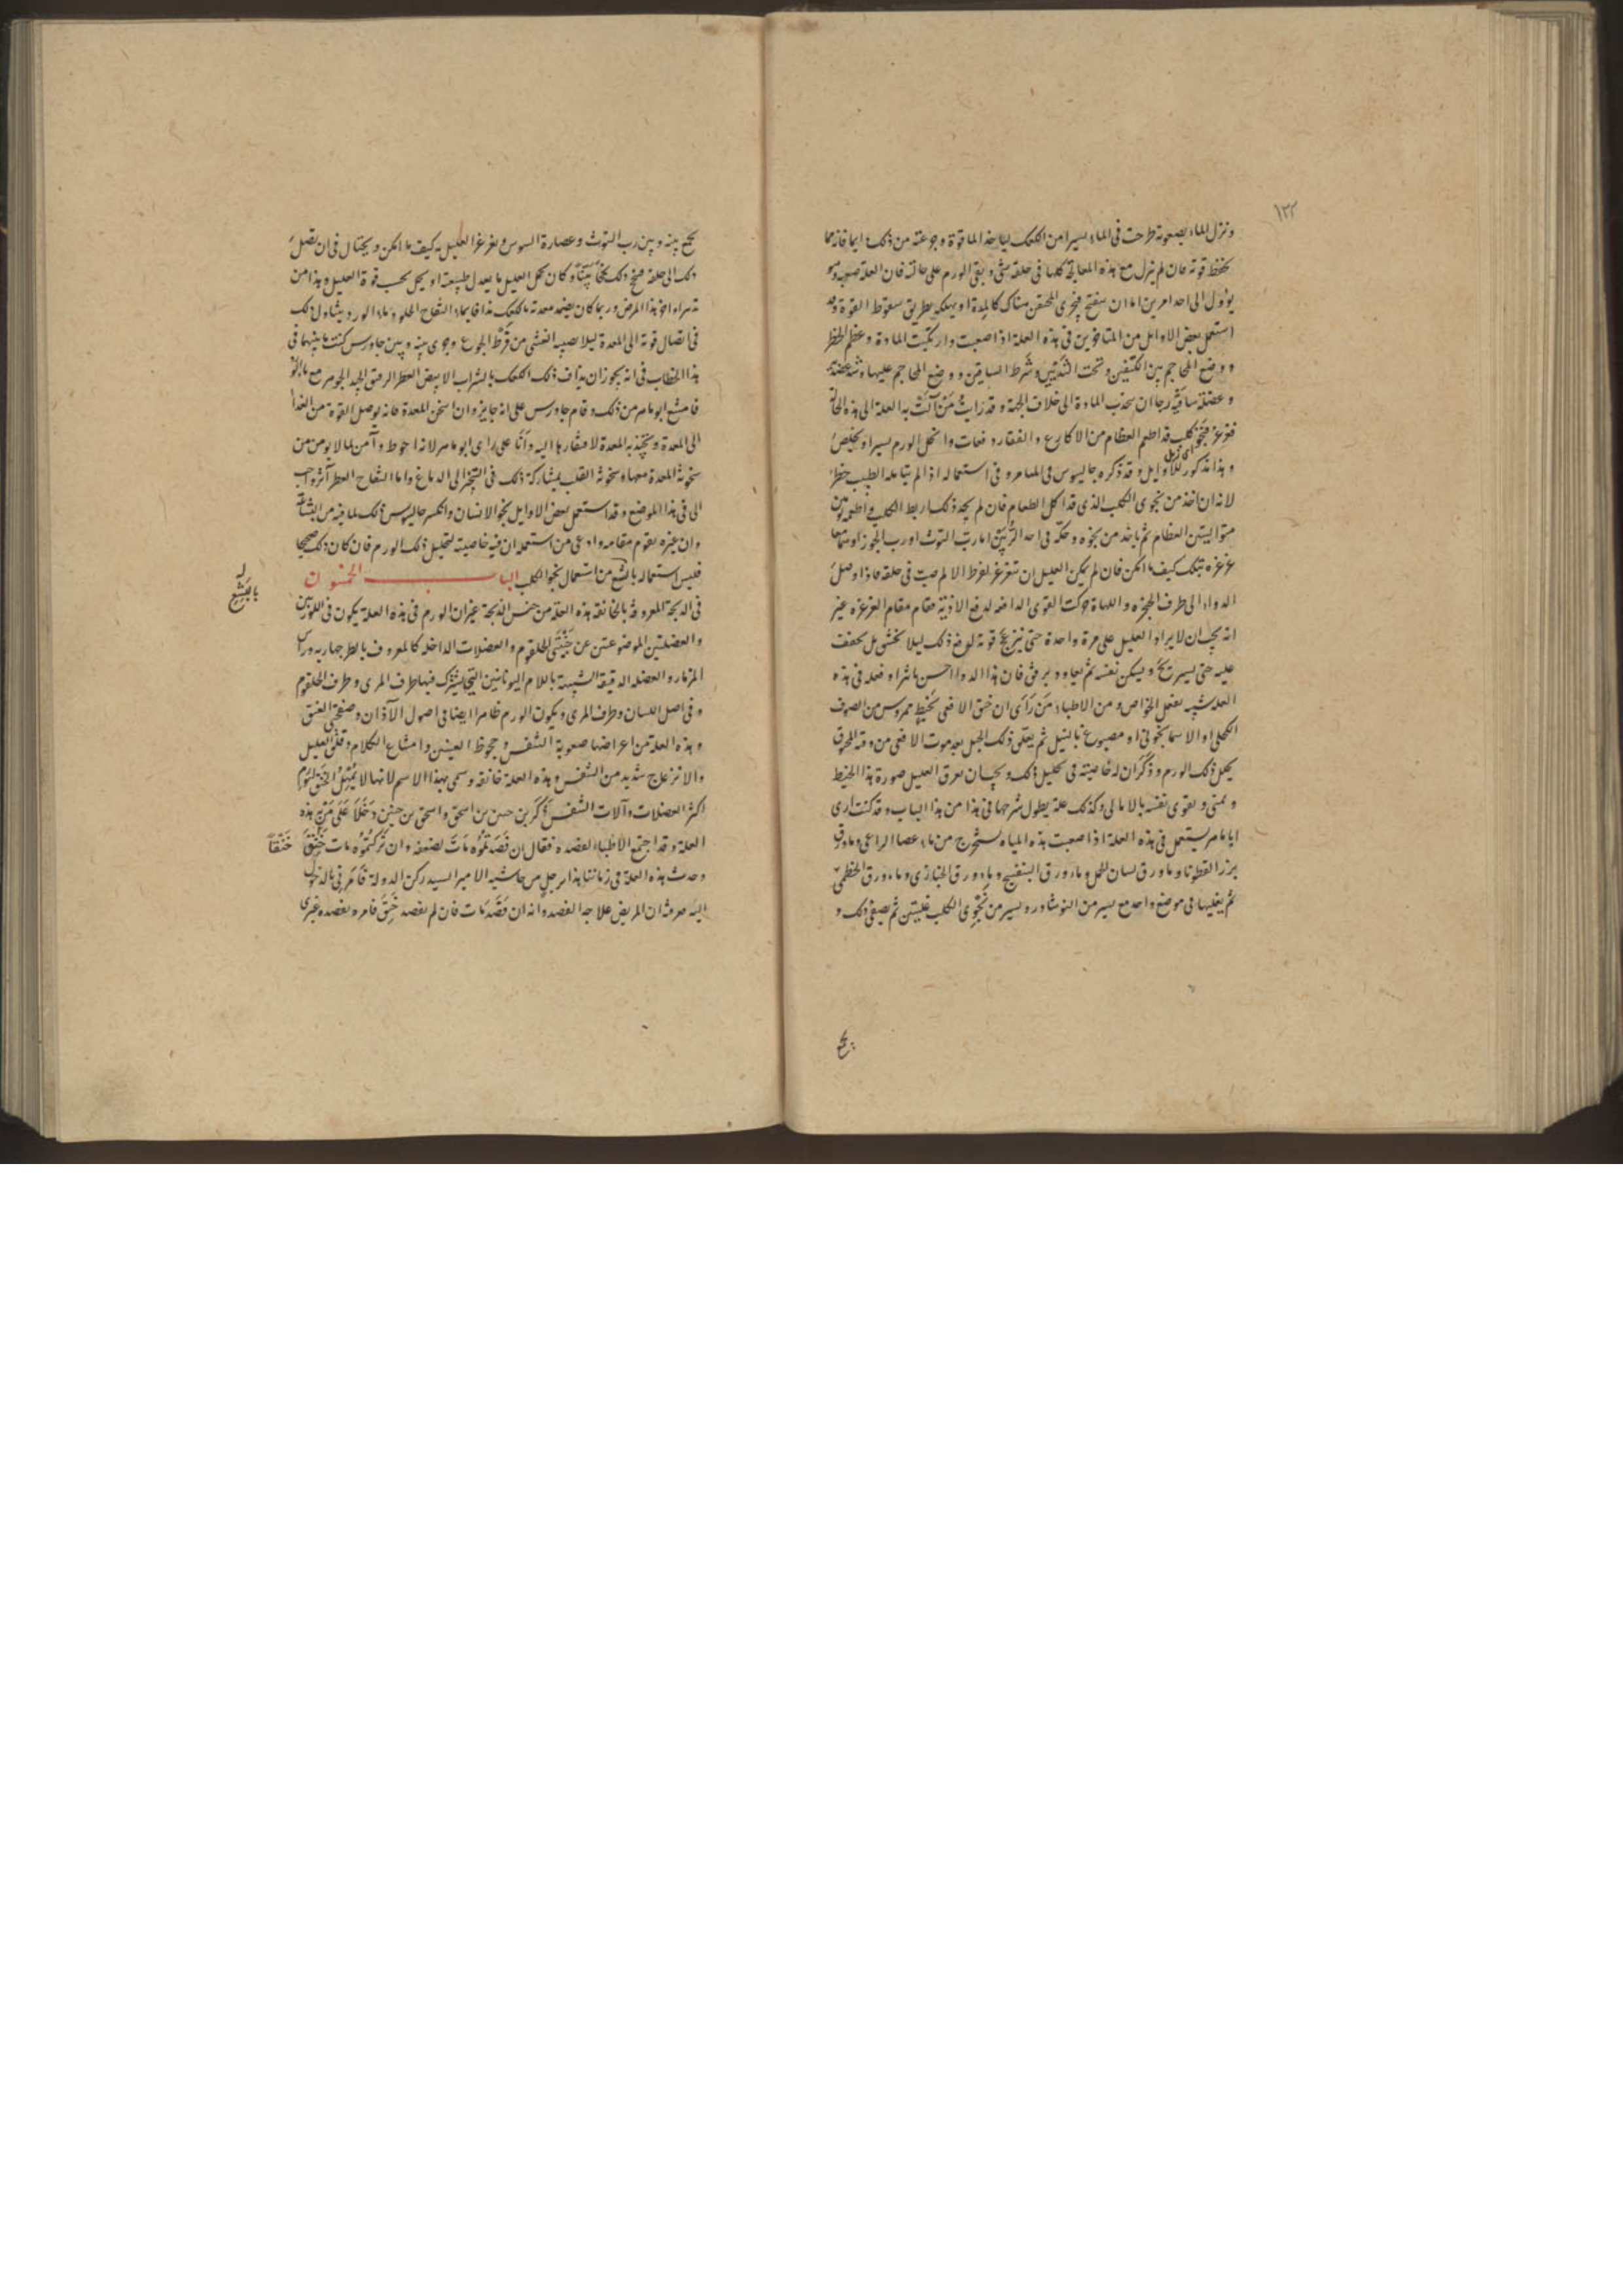 ١٢٢
ونزل الماء بصعوبة طرحت فى الماء يسيرا من الكعك لياخذ الماء قوة وجرعته من ذلك ايضا فانه مما
يحفظ قوته فان لم ينزل مع هذه المعالجة كلها فى حلقه شى وبقى الورم على حالته فان العلة صعبة وهو
يؤول الى احد امرين اما ان ينفتح فيجرى المحتقن هناك كالمدة او يهلكه بطريق سقوط القوة وقد
استعمل بعض الاوايل من المتاخرين فى هذه العلة اذا صعبت وارتكبت المادة وعظم الخطر
ووضع المحاجم بين الكتفين وتحت الثديين وشرط الساقين ووضع المحاجم عليها وشد عضده
وعضلة ساقيه رجا ان يجذب المادة الى خلاف الجهة وقد رايت من آلت به العلة الى هذه الحالة
فغرغر بنجو كلب قد اطعم العظام من الاكارع والفقار دفعات وانحل الورم يسيرا وتخلص
اى زبل
وهذا مذكور للاوايل وقد ذكره جالينوس فى الميامر وفى استعماله اذا لم يتامله الطبيب خطر
لانه ان اخذ من نجو الكلب الذى قد اكل الطعام فان لم يجد ذلك ربط الكلب واطعمه يومين
متواليين العظام ثم ياخذ من نجوه وحكه فى احد الربين اما رب التوث او رب الجوز او
غرغره بتلك كيف ما امكن فان لم يمكن العليل ان يتغرغر لفرط الالم صبت فى حلقه فاذا وصل
الدواء الى طرف الحنجره واللهاة حركت القوى الدافعه لدفع الاذية فقام مقام الغرغره غير
انه يجب ان لا يراد العليل على مرة واحدة حتى ينزعج قوته لدفع ذلك ليلا يختنق بل يخفف
عليه حتى يستريح ويسكن نفسه ثم يعاود برفق فان هذا الدوا احسن ماثرا وفعله فى هذه
العلة شبيه بفعل الخواص ومن الاطباء من راى ان خنق الافعى بخيط ممروس من الصوف
الكحلى او الاسمانجونى او مصبوغ بالنيل ثم يعلق ذلك الحبل بعد موت الافعى من
يحل ذلك الورم وذكر ان له خاصيته فى تحليل ذلك ويجب ان يعرف العليل صورة هذا الخيط
ويمنى ويقوى نفسه بالامالى وكذلك علة يطول شرحها فى هذا من هذا الباب وقد كنت ارى
ابا ماهر يستعمل فى هذه العلة اذا صعبت هذه المياه يستخرج من ماء عصا الراعى وماء ورق
بزر القطونا وماء ورق لسان الحمل وماء ورق البنفسج وماء ورق الخبازى وماء ورق الخطمى
ثم يغليها فى موضع واحد مع يسير من النوشادر ويسير من نجو الكلب غليتين ثم يصفى ذلك و
يجمع
يجمع بينه وبين رب التوث وعصارة السوس ويغرغر العليل به كيف ما امكن ويحتال فى ان يصل
ذلك الى حلقه فينجح ذلك نجحا بينا وكان يحل العليل ما يعدل طبيعته او يحل بحسب قوة العليل وهذا من
تدبيراواخر هذا المرض وربما كان يضمد معدته بالكعك مدافا بماء التفاح الحلو وماء الورد يتناول ذلك
فى اتصال قوته الى المعدة ليلا يصيبه الغشى من فرط الجوع وجرى بينه وبين جاورس كنت بينهما فى
هذا الخطاب فى انه يجوز ان يداف ذلك الكعك بالشراب الابيض العطر الرقيق الجيد الجوهر مع ماء
فامتنع ابو ماهر من ذلك وقام جاورس على انه جايز وان اسخن المعدة فانه يوصل القوة من الغذا
الى المعدة ويجتذبه المعدة لافتقارها اليه وانا على راى ابو ماهر لانه احوط وآمن لما لا يومن من
سخونة المعدة معها وسخونة القلب بمشاركة ذلك فى البخر الى الدماغ واما التفاح العطر آثر واحب
الى فى هذا الموضع وقد استعمل بعض الاوايل نجو الانسان وانكر جالينوس ذلك لما فيه من البشاعة
وان غيره يقوم مقامه وادعى من استعمله ان فيه خاصيته لتحليل ذلك الورم فان كان ذلك صحيحا
فليس استعماله بابشع من استعمال نجو الكلب الباب الخمسون
بابشع
فى الذبحة المعروفة بالخانقة هذه العلة من جنس الذبحة غير ان الورم فى هذه العلة يكون فى اللوزتين
والعضلتين الموضوعتين عن جنبتى الحلقوم والعضلات الداخله كالمعروف بالطرجهارية وراس
المزمار والعضله الدقيقة الشبيهة باللام اليونانيين التى يشترك فيها طرف المرى وطرف الحلقوم
وفى اصل اللسان وطرف المرى ويكون الورم ظاهرا ايضا فى اصول الآذان وصفحتى العنق
وهذه العلة من اعراضها صعوبة التنفس وجحوظ العينين وامتناع الكلام وقلق العليل
والانزعاج شديد من التنفس وهذه العلة خانقه وسمى بهذا الاسم لانها لا يمهل الخنق لتورم
اكثر العضلات وآلات التنفس ذكر بن حسن بن اسحق واسحق بن حنين دخلا على من به هذه
العلة وقد اجتمع الاطباء لفصده فقال ان فصدتموه مات لضعفه وان تركتموه مات خنقا
خنقا
وحدث هذه العلة فى زماننا هذا برجل من حاشية الامير السيد ركن الدولة فامرنى بالدخول
اليه عرفته ان المريض علاجه الفصد وانه ان فصد مات فان لم يفصد خنق فامر بفصده غيرى